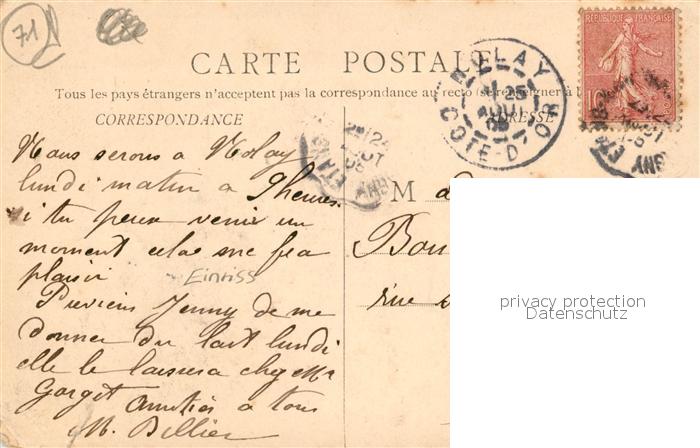 71
CARTE POSTALE
RÉPUBLIQUE FRANÇAISE
10
Tous les pays étrangers n'acceptent pas la correspondance au recto (se renseigner à la
CORRESPONDANCE
ADRESSE
NOLAY
25
AOUT
COTE-D'OR
Nous serons à Nolay
lundi matin à 9 heures
si tu peux venir un
moment cela me fera
plaisir
Einriss
Previens Jenny de me
donner du lait lundi
elle le laissera chez Mr
Gorget amitiés à tous
M. Billier
M
Bou
rue
privacy protection
Datenschutz